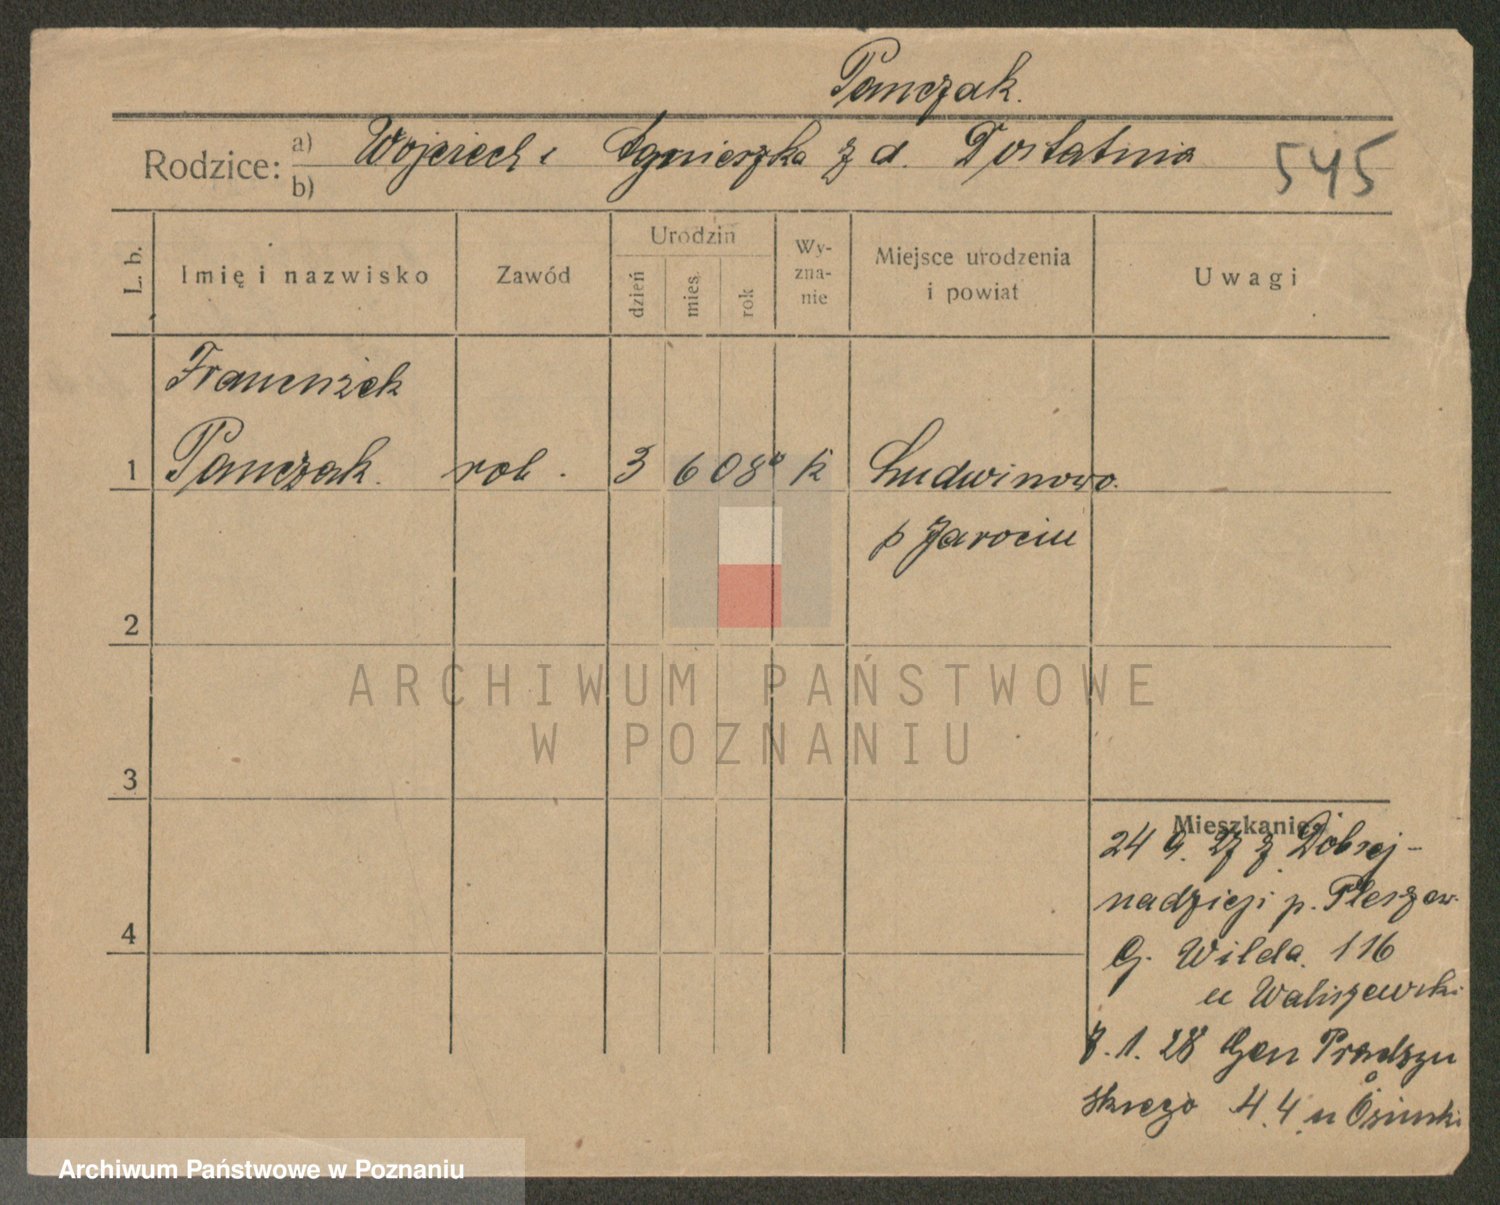 Panczak.
Rodzice: a) Wojciech i Agnieszka z d. Dostatnia
b)
545
L. b.
Imię i nazwisko
Zawód
Urodzin
dzień
mies.
rok
Wy-
zna-
nie
Miejsce urodzenia
i powiat
Uwagi
Franciszek
1 Panczak. rob. 3 6 08 k Ludwinowo.
p Jarocin
2
3
4
Mieszkanie:
24 9. 27 z Dobrej-
nadzieji p. Pleszew.
G. Wilda. 116
u Waliszewski
7. 1. 28 Gen Prądzyń
skiego 44 u Osinski
ARCHIWUM PAŃSTWOWE
W POZNANIU
Archiwum Państwowe w Poznaniu